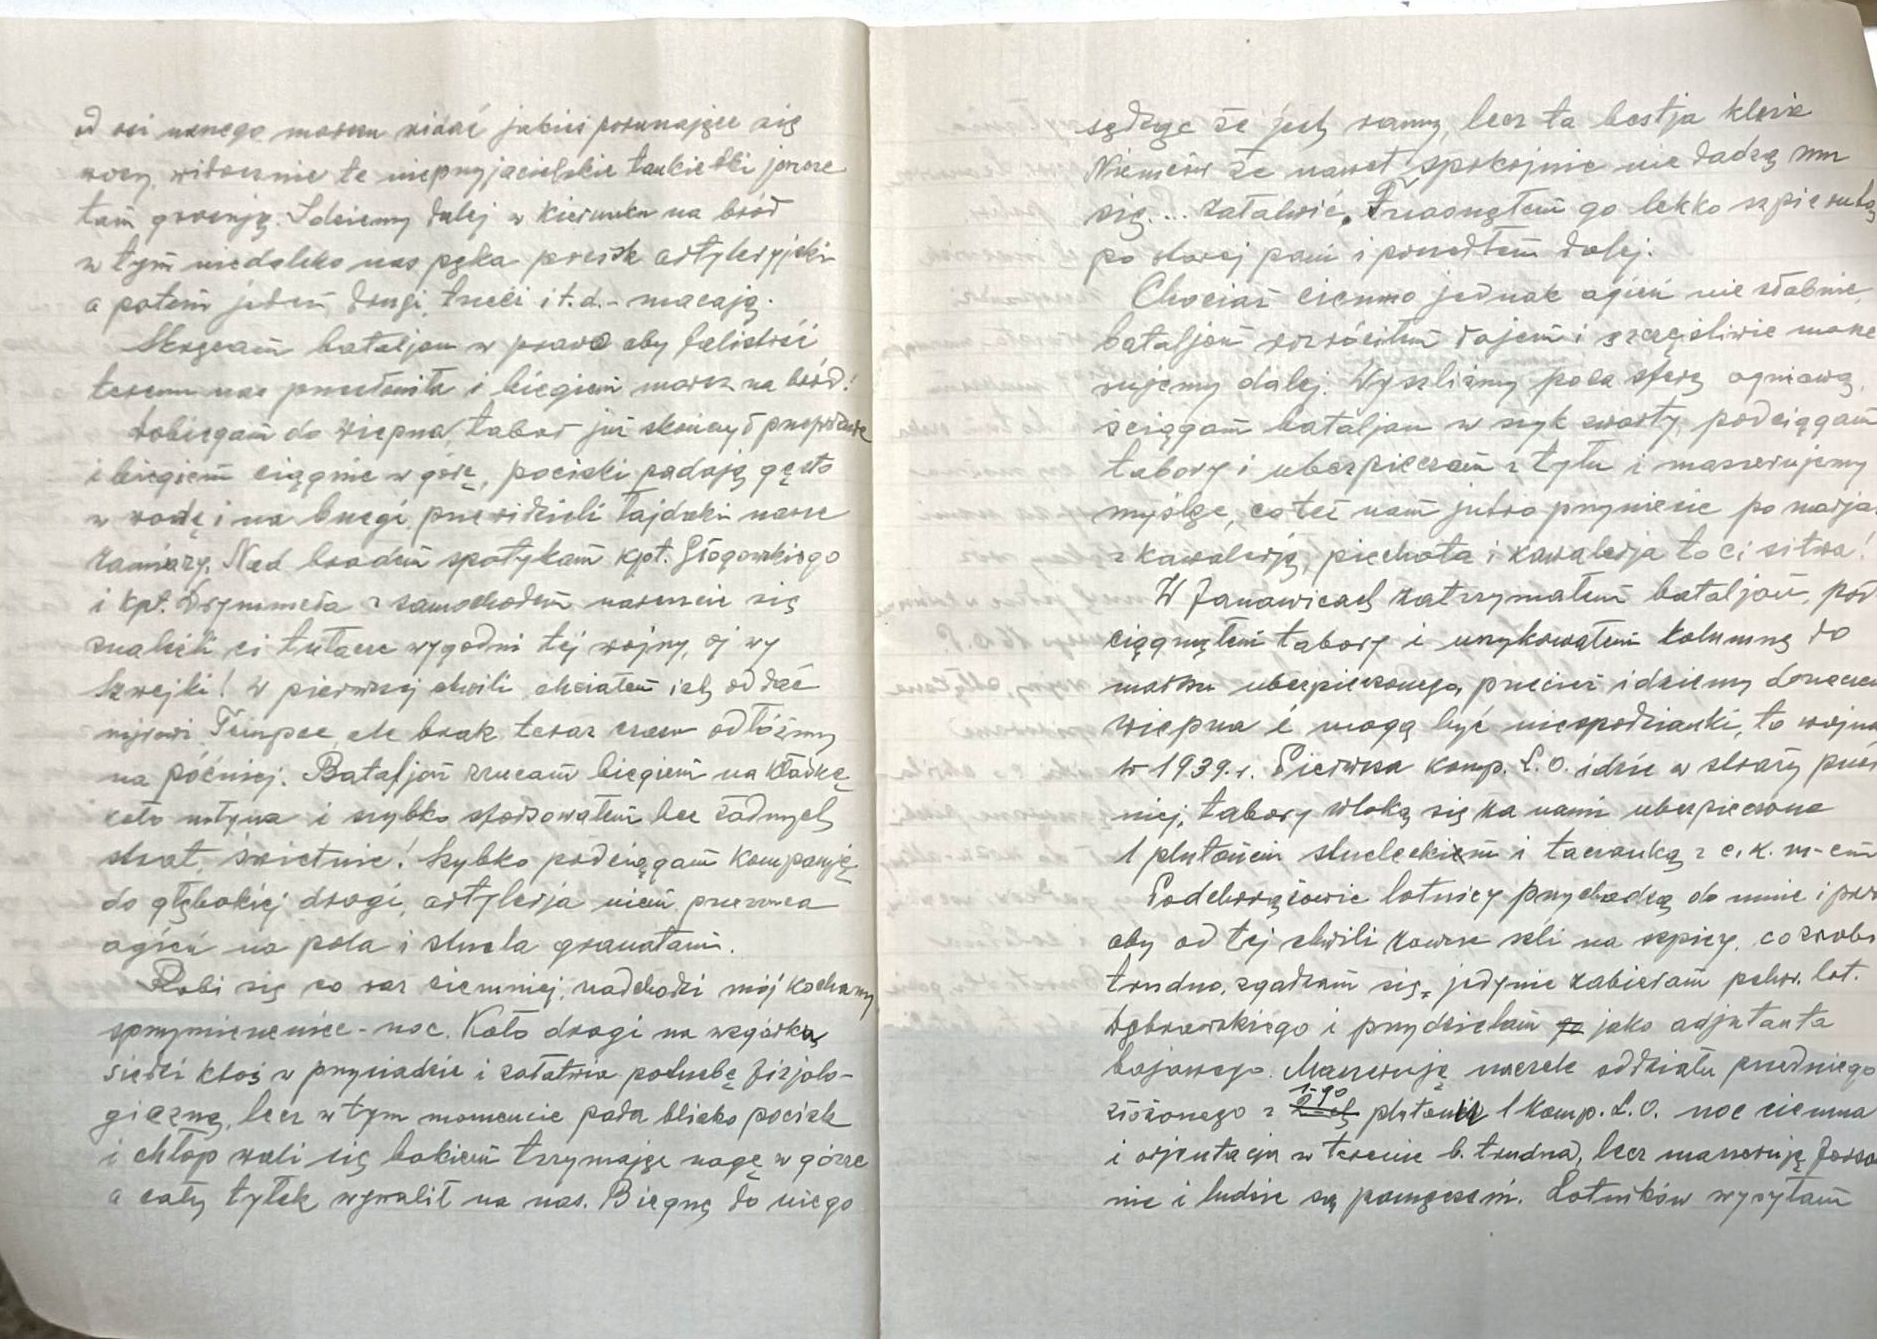 od osi naszego marszu widać jakieś posuwające się
wozy, widocznie te nieprzyjacielskie tankietki jeszcze
tam grasują. Idziemy dalej w kierunku na bród
w tym niedaleko nas pęka pocisk artyleryjski
a potem jeden, drugi, trzeci i t.d. - macają.
Skręcam bataljon w prawo aby falistość
terenu nas przesłoniła i biegiem marsz na bród!
Dobiegam do Wieprza, tabor już skończył przeprawę
i biegiem ciągnie w górę, pociski padają gęsto
w wodę i na brzegi, przewidzieli łajdaki nasze
zamiary. Nad brodem spotykam kpt. Głogowskiego
i kpt. z samochodem nareszcie się
znaleźli ci tułacze wygodni tej wojny, oj wy
Szwejki! W pierwszej chwili chciałem ich oddać
ale brak teraz czasu odłóżmy
na później. Bataljon rzucam biegiem na kładkę
koło młyna i szybko sforsowałem bez żadnych
strat, świetnie! Szybko podciągam kompanję
do głębokiej drogi, artylerja niem. przerzuca
ogień na pola i strzela granatami.
Robi się co raz ciemniej, nadchodzi mój kochany
sprzymierzeniec - noc. Koło drogi na wzgórku
siedzi ktoś w przysiadzie i załatwia potrzebę fizjolo-
giczną, lecz w tym momencie pada blisko pocisk
i chłop wali się bokiem trzymając nogę w górze
a cały tyłek wywalił na nas. Biegnę do niego
sądząc że jest ranny, lecz ta bestja klęnie
Niemców że nawet spokojnie nie dadzą mu
się ... załatwić. Trzasnąłem go lekko szpicrutą
po starej pani i poszedłem dalej.
Chociaż ciemno jednak ogień nie słabnie,
bataljon rozrócitem dojem i szczęśliwie masze
rujemy dalej. Wyszliśmy poza sferę ogniową,
ściągam bataljon w szyk zwarty, podciągam
tabory i ubezpieczam z tyłu i maszerujemy
myśląc, co też nam jutro przyniesie
z kawalerją, piechota i kawalerja to ci sitwa!
W Janowicach zatrzymałem bataljon, pod
ciągnąłem tabory i uszykowałem kolumnę do
marszu ubezpieczonego, przecież idziemy
Wieprza i mogą być niespodzianki, to wojna
w 1939.r. Pierwsza komp. L.O. idzie w straży przed
niej, tabory wloką się za nami ubezpieczone
1 plutonem strzeleckiem i taczanką z c.k.m-em
Podchorążowie lotnicy przychodzą do mnie i pro
aby od tej chwili zawsze szli na szpicy, co zrobi
trudno, zgadzam się, jedynie zabieram pchor. lot.
Dąbrowskiego i przydzielam go jako adjutanta
bojowego. Maszeruję na czele oddziału przedniego
złożonego z 1-go plutonu 1 komp. L.O. noc ciemna
i orjentacja w terenie b. trudna, lecz maszeruję
nie i ludzie są pomęczeni. Lotników wysyłam